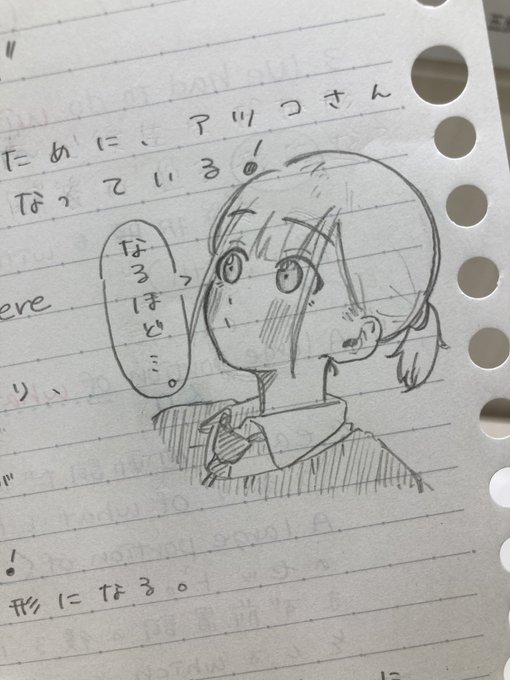 ために、アツコさん
なっている!
なるほど…。
ere
り、
が
!
形になる。
に